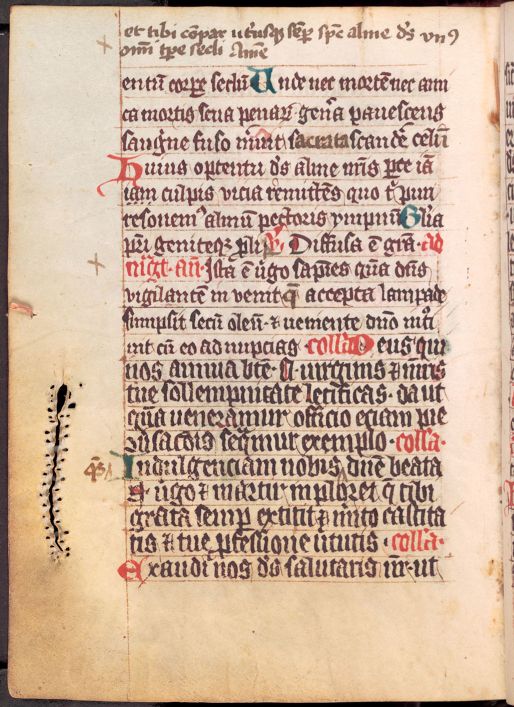 et tibi cōpar utriusq̄ sēp spē alme ds̄ vnꝰ
om̄i tꝑe secli Amē
entū corꝑe seclm̄ Unde nec mortē nec am
ca mortis seua penaꝝ gen̄a pauescens
sangne fuso mūt sacrata scandē celū
Huius optentu ds̄ alme nr̄is ꝑce iā
iam culpis vicia remittēs quo t' puri
resonemꝰ almū pectoris ympnū Gl'ia
pr̄i geniteqꝫ ꝓli v̄s. Diffusa ē grā · ad
m̄gt · an̄ · Ista ē v'go sapiēs quā dn̄s
vigilantem in venit q̄ accepta lampade
sumpsit secū oleū · ⁊ veniente dn̄o int'oi
uit cū eo ad nupcias · coll'a Deus qui
nos annua bt̄e · N · virginis ⁊ mr̄is
tue sollempnitate letificas · da ut
quā veneramur officio eciam pie
su sacōis seq̄mur exemplo · coll'a ·
Indulgenciam nobis dn̄e beata
N · v'go ⁊ martir imploret q̄ tibi
grata semꝑ extitit ⁊ m'ito castita
tis ⁊ tue ꝓfessione v'tutis · coll'a ·
Exaudi nos ds̄ salutaris nr̄ · ut